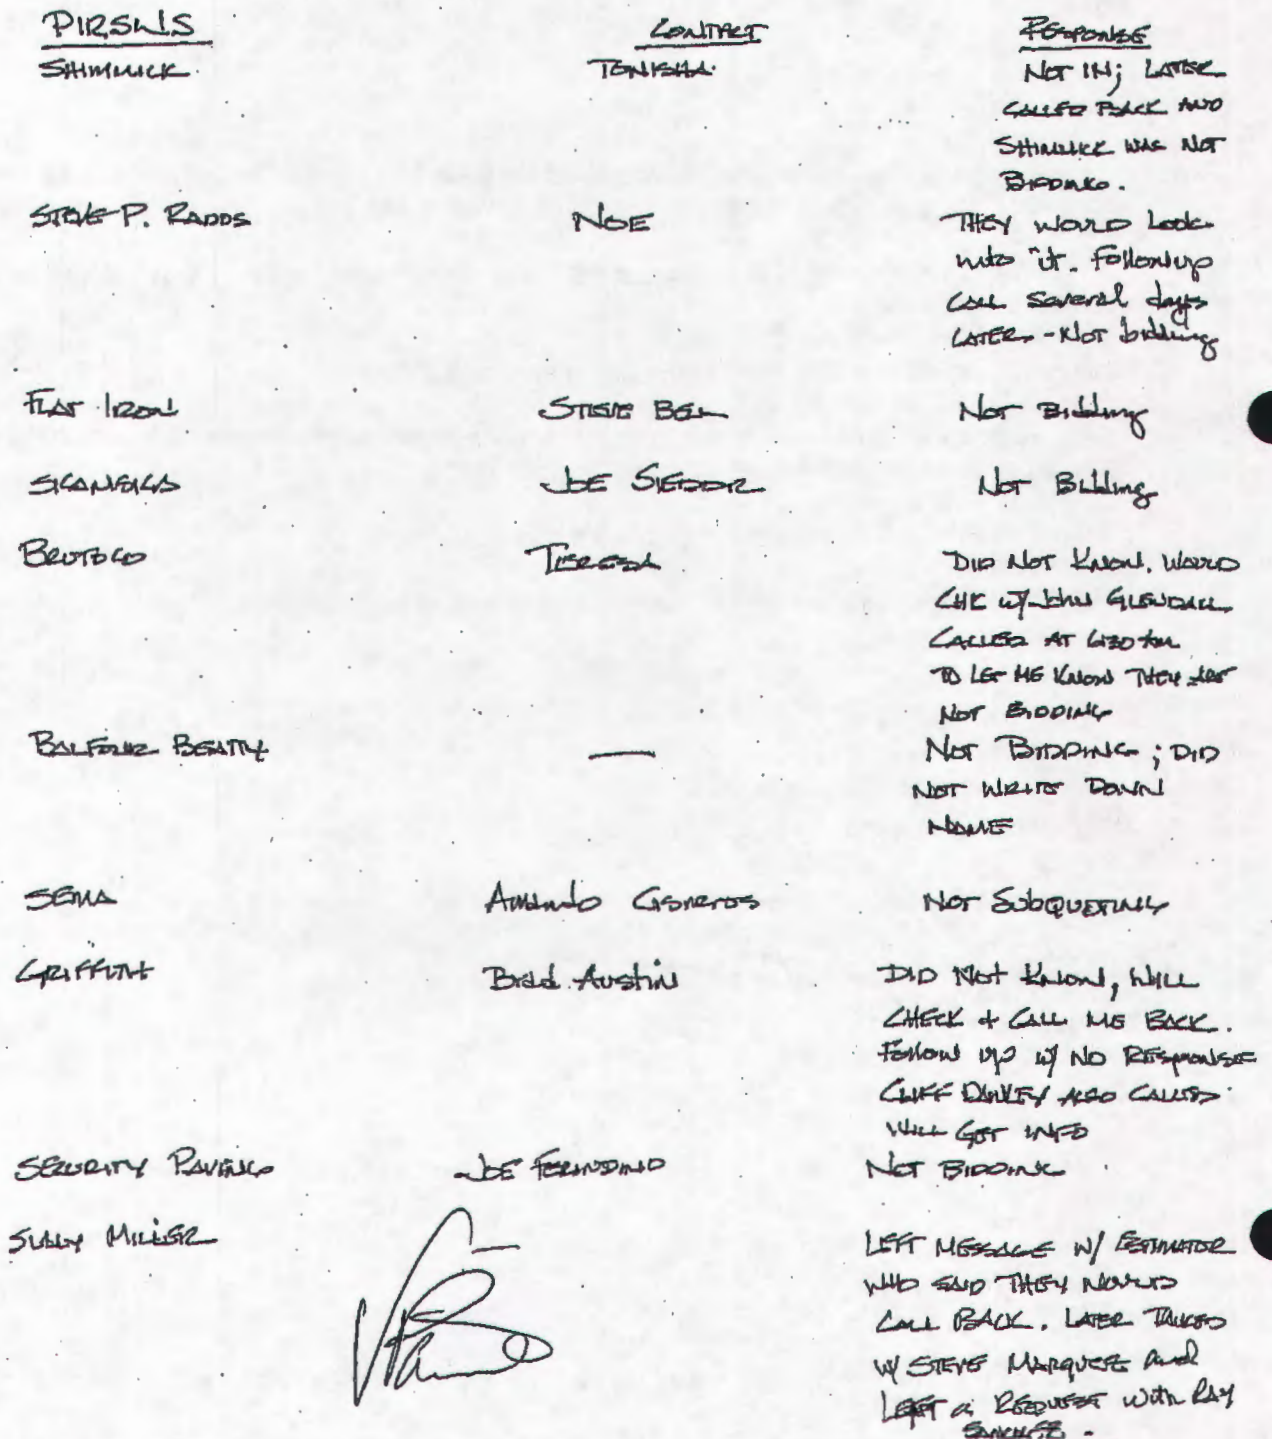 CONTACT RESPONSE
SHIMMICK TENISHA NOT IN; LATER
CALLED BACK AND
SHIMMICK WAS NOT
BIDDING.
STEVE P. RADOS NOE THEY WOULD LOOK
into it. Followup
CALL several days
LATER - NOT bidding
FLAT IRON STEVE BELL NOT Bidding
SKANSKA JOE Not Bidding
BRUTOCO TERESA DID NOT KNOW. WOULD
CHK W/ JOHN GLENDALL
CALLED AT 6:30 AM
TO LET ME KNOW THEY ARE
NOT BIDDING
BALFOUR BEATTY — NOT BIDDING; DID
NOT WRITE DOWN
NAME
SEMA Armando Cisneros NOT SUBQUOTING
GRIFFITH Brad Austin DID NOT KNOW, WILL
CHECK + CALL ME BACK.
Follow up w/ NO RESPONSE
CLIFF ALSO CALLED
WILL GET INFO
SECURITY PAVING JOE NOT BIDDING
SULLY MILLER LEFT MESSAGE W/ ESTIMATOR
WHO SAID THEY WOULD
CALL BACK. LATER TALKED
W/ STEVE MARQUEZ and
LEFT a REQUEST with RAY
SANCHEZ.